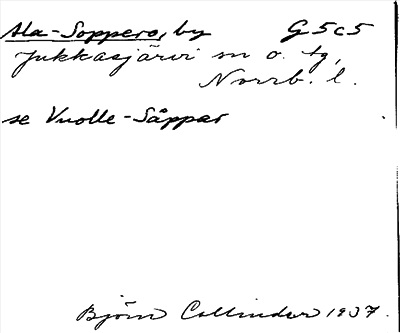 Ala-Soppero, by G5c5
Jukkasjärvi sn o. tg,
Norrb. l.
se Vuolle-Såppar
Björn Collinder 1937.